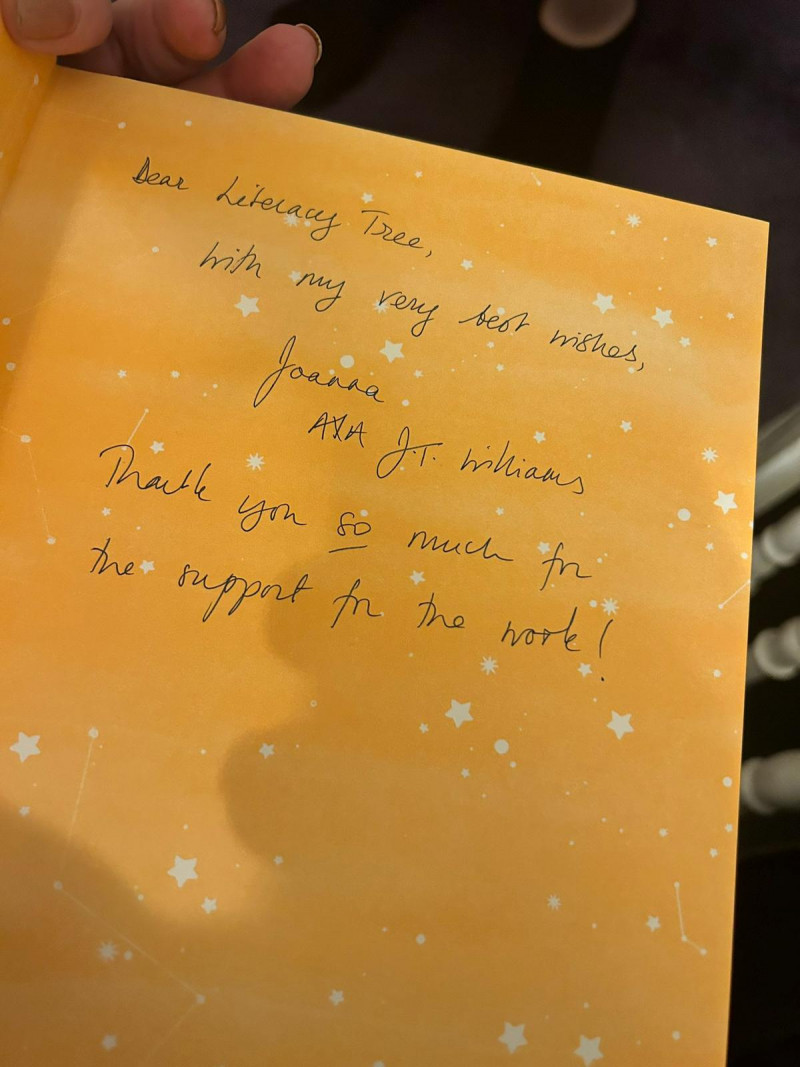 Dear Literacy Tree,
With my very best wishes,
Joanna
AKA J.T. Williams
Thank you so much for
the support for the work!